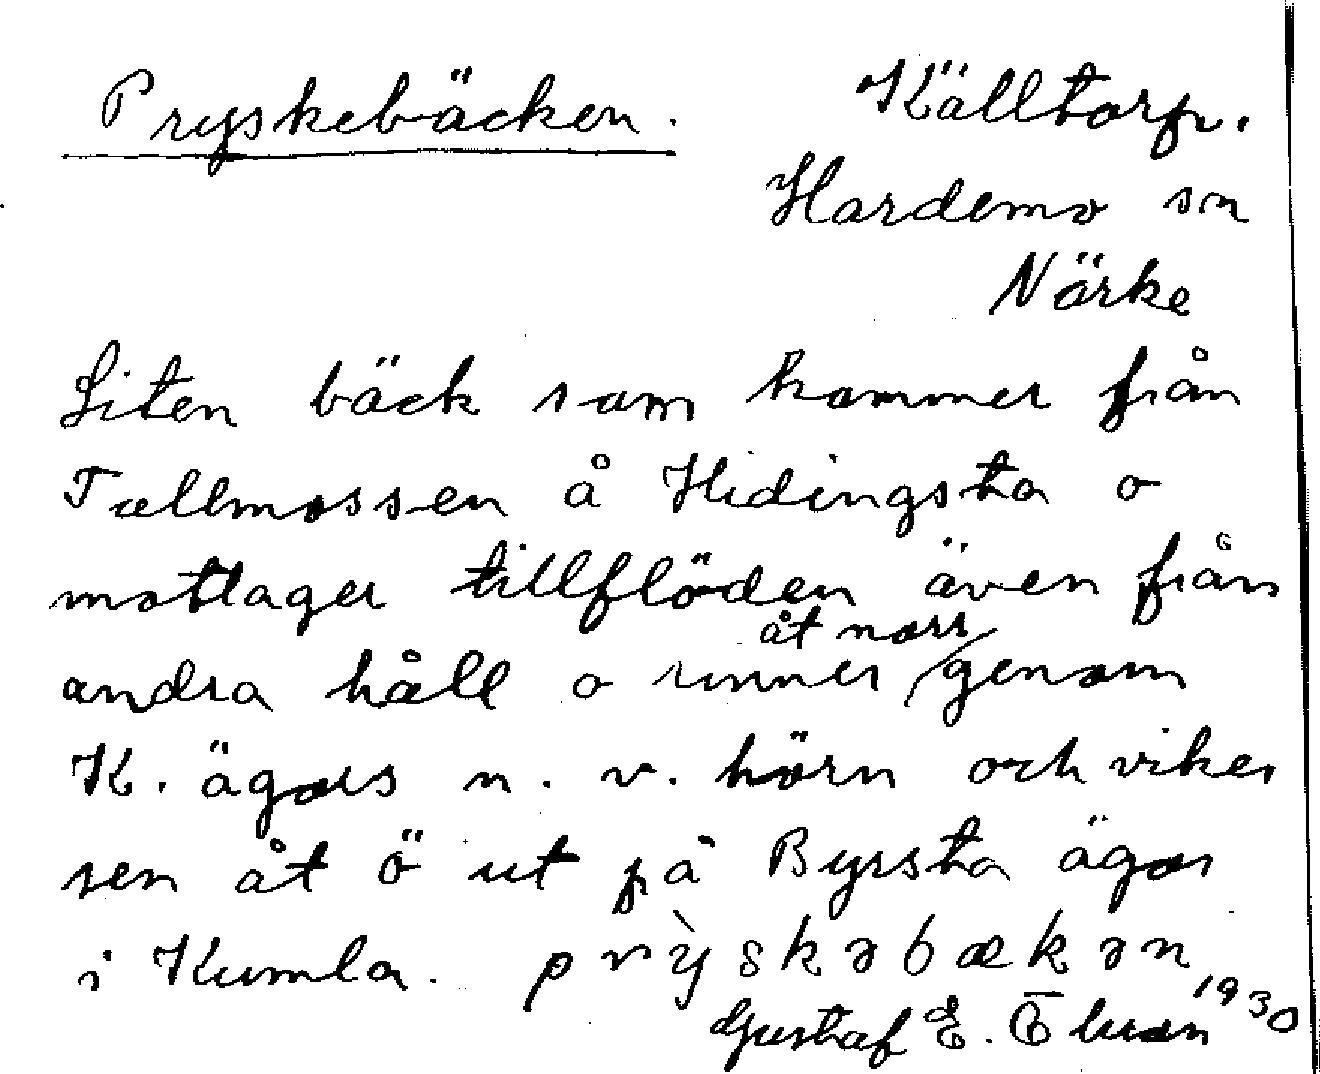 Pryskebäcken.
Källtorp.
Hardemo sn
Närke
Liten bäck som kommer från
Tallmossen å Hidingsta o
mottager tillflöden även från
åt norr
andra håll o rinner genom
K. ägors n. v. hörn och viker
sen åt ö ut på Byrsta ägor
i Kumla. prỳskəbækən
1930
Gustaf E.